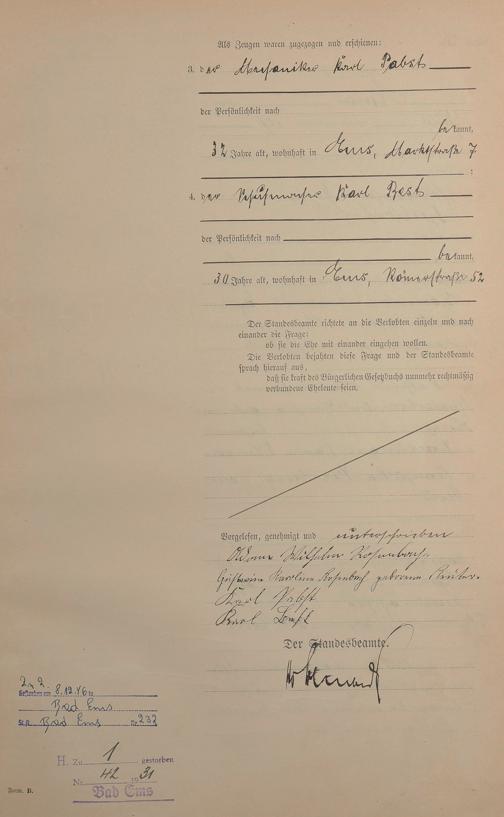 Als Zeugen waren zugezogen und erschienen:
3. der Mechaniker Karl Pabst
der Persönlichkeit nach
bekannt,
32 Jahre alt, wohnhaft in Ems, Marktstraße 7
;
4. der Schuhmacher Karl Best
der Persönlichkeit nach
bekannt,
30 Jahre alt, wohnhaft in Ems, Römerstraße 52
Der Standesbeamte richtete an die Verlobten einzeln und nach
einander die Frage:
ob sie die Ehe mit einander eingehen wollen.
Die Verlobten bejahten diese Frage und der Standesbeamte
sprach hierauf aus,
daß sie kraft des Bürgerlichen Gesetzbuchs nunmehr rechtmäßig
verbundene Eheleute seien.
Vorgelesen, genehmigt und unterschrieben
Wilhelm Rosenbach
Karoline Rosenbach geborene
Karl Pabst
Karl Best
Der Standesbeamte.
Zu 2.
Gestorben am 8.12.46
Bad Ems
Bad Ems Nr. 232
H. Zu 1 gestorben
Nr. 42 1931
Bad Ems
Form. B.